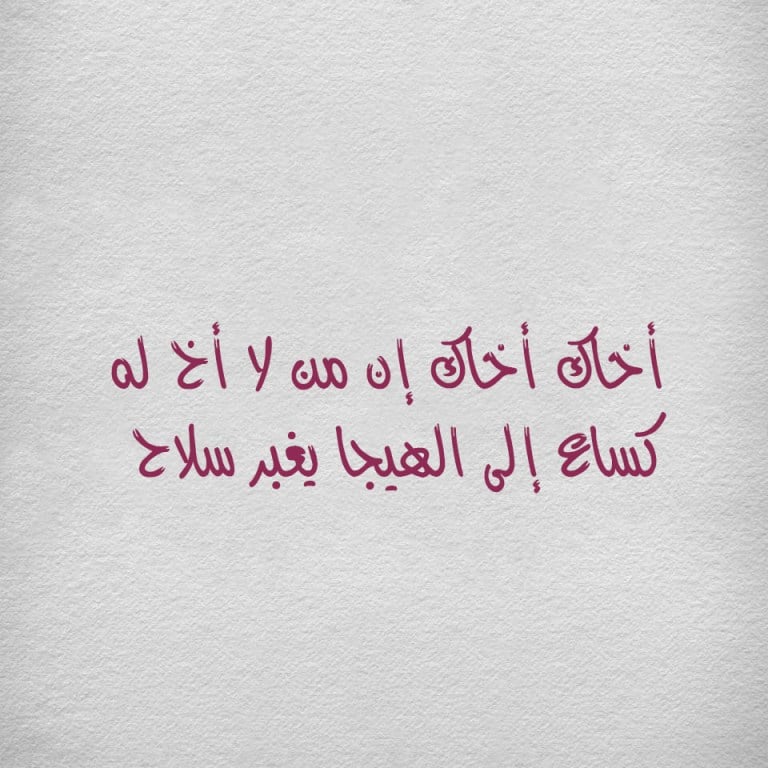 أخاك أخاك إن من لا أخ له
كساع إلى الهيجا يغبر سلاح